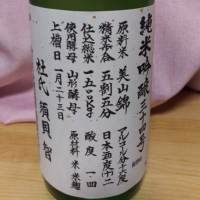 純米吟醸三十四号
アルコール分十六度
原料米 美山錦
日本酒度＋二
精米歩合 五割五分
酸度 一・四
仕込総米 一五〇〇kg
使用酵母 山形酵母
原材料 米 米麹
上槽日 一月二十三日
杜氏 須貝 智